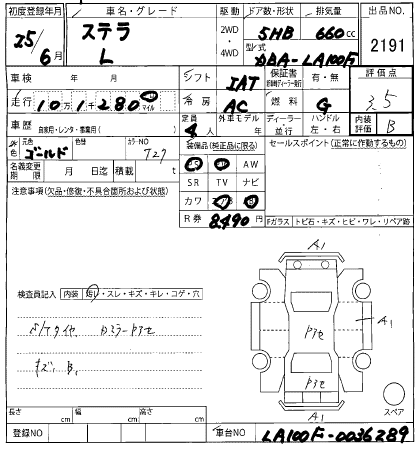 初度登録年月
車名・グレード
駆動
ドア数・形状
排気量
出品NO.
25/6月
ステラ
L
2WD
・
4WD
5HB
660cc
2191
型式
DBA-LA100F
車検 年 月
シフト
IAT
保証書
有・無
評価点
走行
10万1千280
マイル
冷房
AC
燃料
G
3.5
車歴
自家用・レンタ・事業用( )
定員
4人
外車モデル
年
ディーラー
並行
ハンドル
左・右
内装
評価
B
外色
元色
ゴールド
色替
カラーNO
727
装備品(純正品に限る)
セールスポイント(正常に作動するもの)
名義変更
期限
月 日迄
積載
t
AW
SR
TV
ナビ
カワ
R券
8,490円
注意事項(欠品・修復・不具合箇所および状態)
Fガラス
トビ石・キズ・ヒビ・ワレ・リペア跡
A1
検査員記入
内装
汚レ・スレ・キズ・キレ・コゲ・穴
キズ. B,
A1
A1
スペア
長さ
cm
幅
cm
高さ
cm
登録NO
車台NO
LA100F-0036289